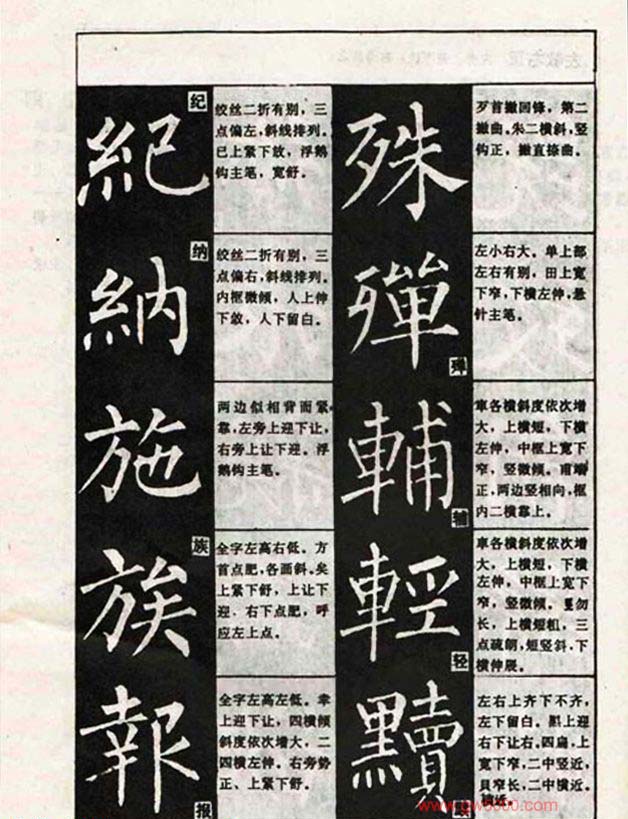 紀
纪
绞丝二折有别，三
点偏左，斜线排列。
已上紧下放，浮鹅
钩主笔，宽舒。
納
纳
绞丝二折有别，三
点偏右，斜线排列。
内框微倾，人上伸
下敛，人下留白。
施
两边似相背而紧
靠，左旁上迎下让，
右旁上让下迎。浮
鹅钩主笔。
族
族
全字左高右低。方
首点肥，各面斜。矣
上紧下舒，上让下
迎，右下点肥，呼
应左上点。
報
报
全字左高左低。幸
上迎下让，四横倾
斜度依次增大，二
四横左伸。右旁势
正、上紧下舒。
殊
歹首撇回锋，第二
撇曲。朱二横斜，竖
钩正，撇直捺曲。
殫
殚
左小右大。单上部
左右有别，田上宽
下窄，下横左伸，悬
针主笔。
輔
辅
車各横斜度依次增
大，上横短，下横
左伸，中框上宽下
窄，竖微倾。甫端
正，两边竖相向，框
内二横靠上。
輕
轻
車各横斜度依次增
大，上横短，下横
左伸，中框上宽下
窄，竖微倾。勿
长，上横短粗，三
点疏朗，短竖斜，下
横伸展。
黷
左右上齐下不齐，
左下留白。黑上迎
右下让右。四扁，上
宽下窄，二中竖近，
貝窄长，二中横近。